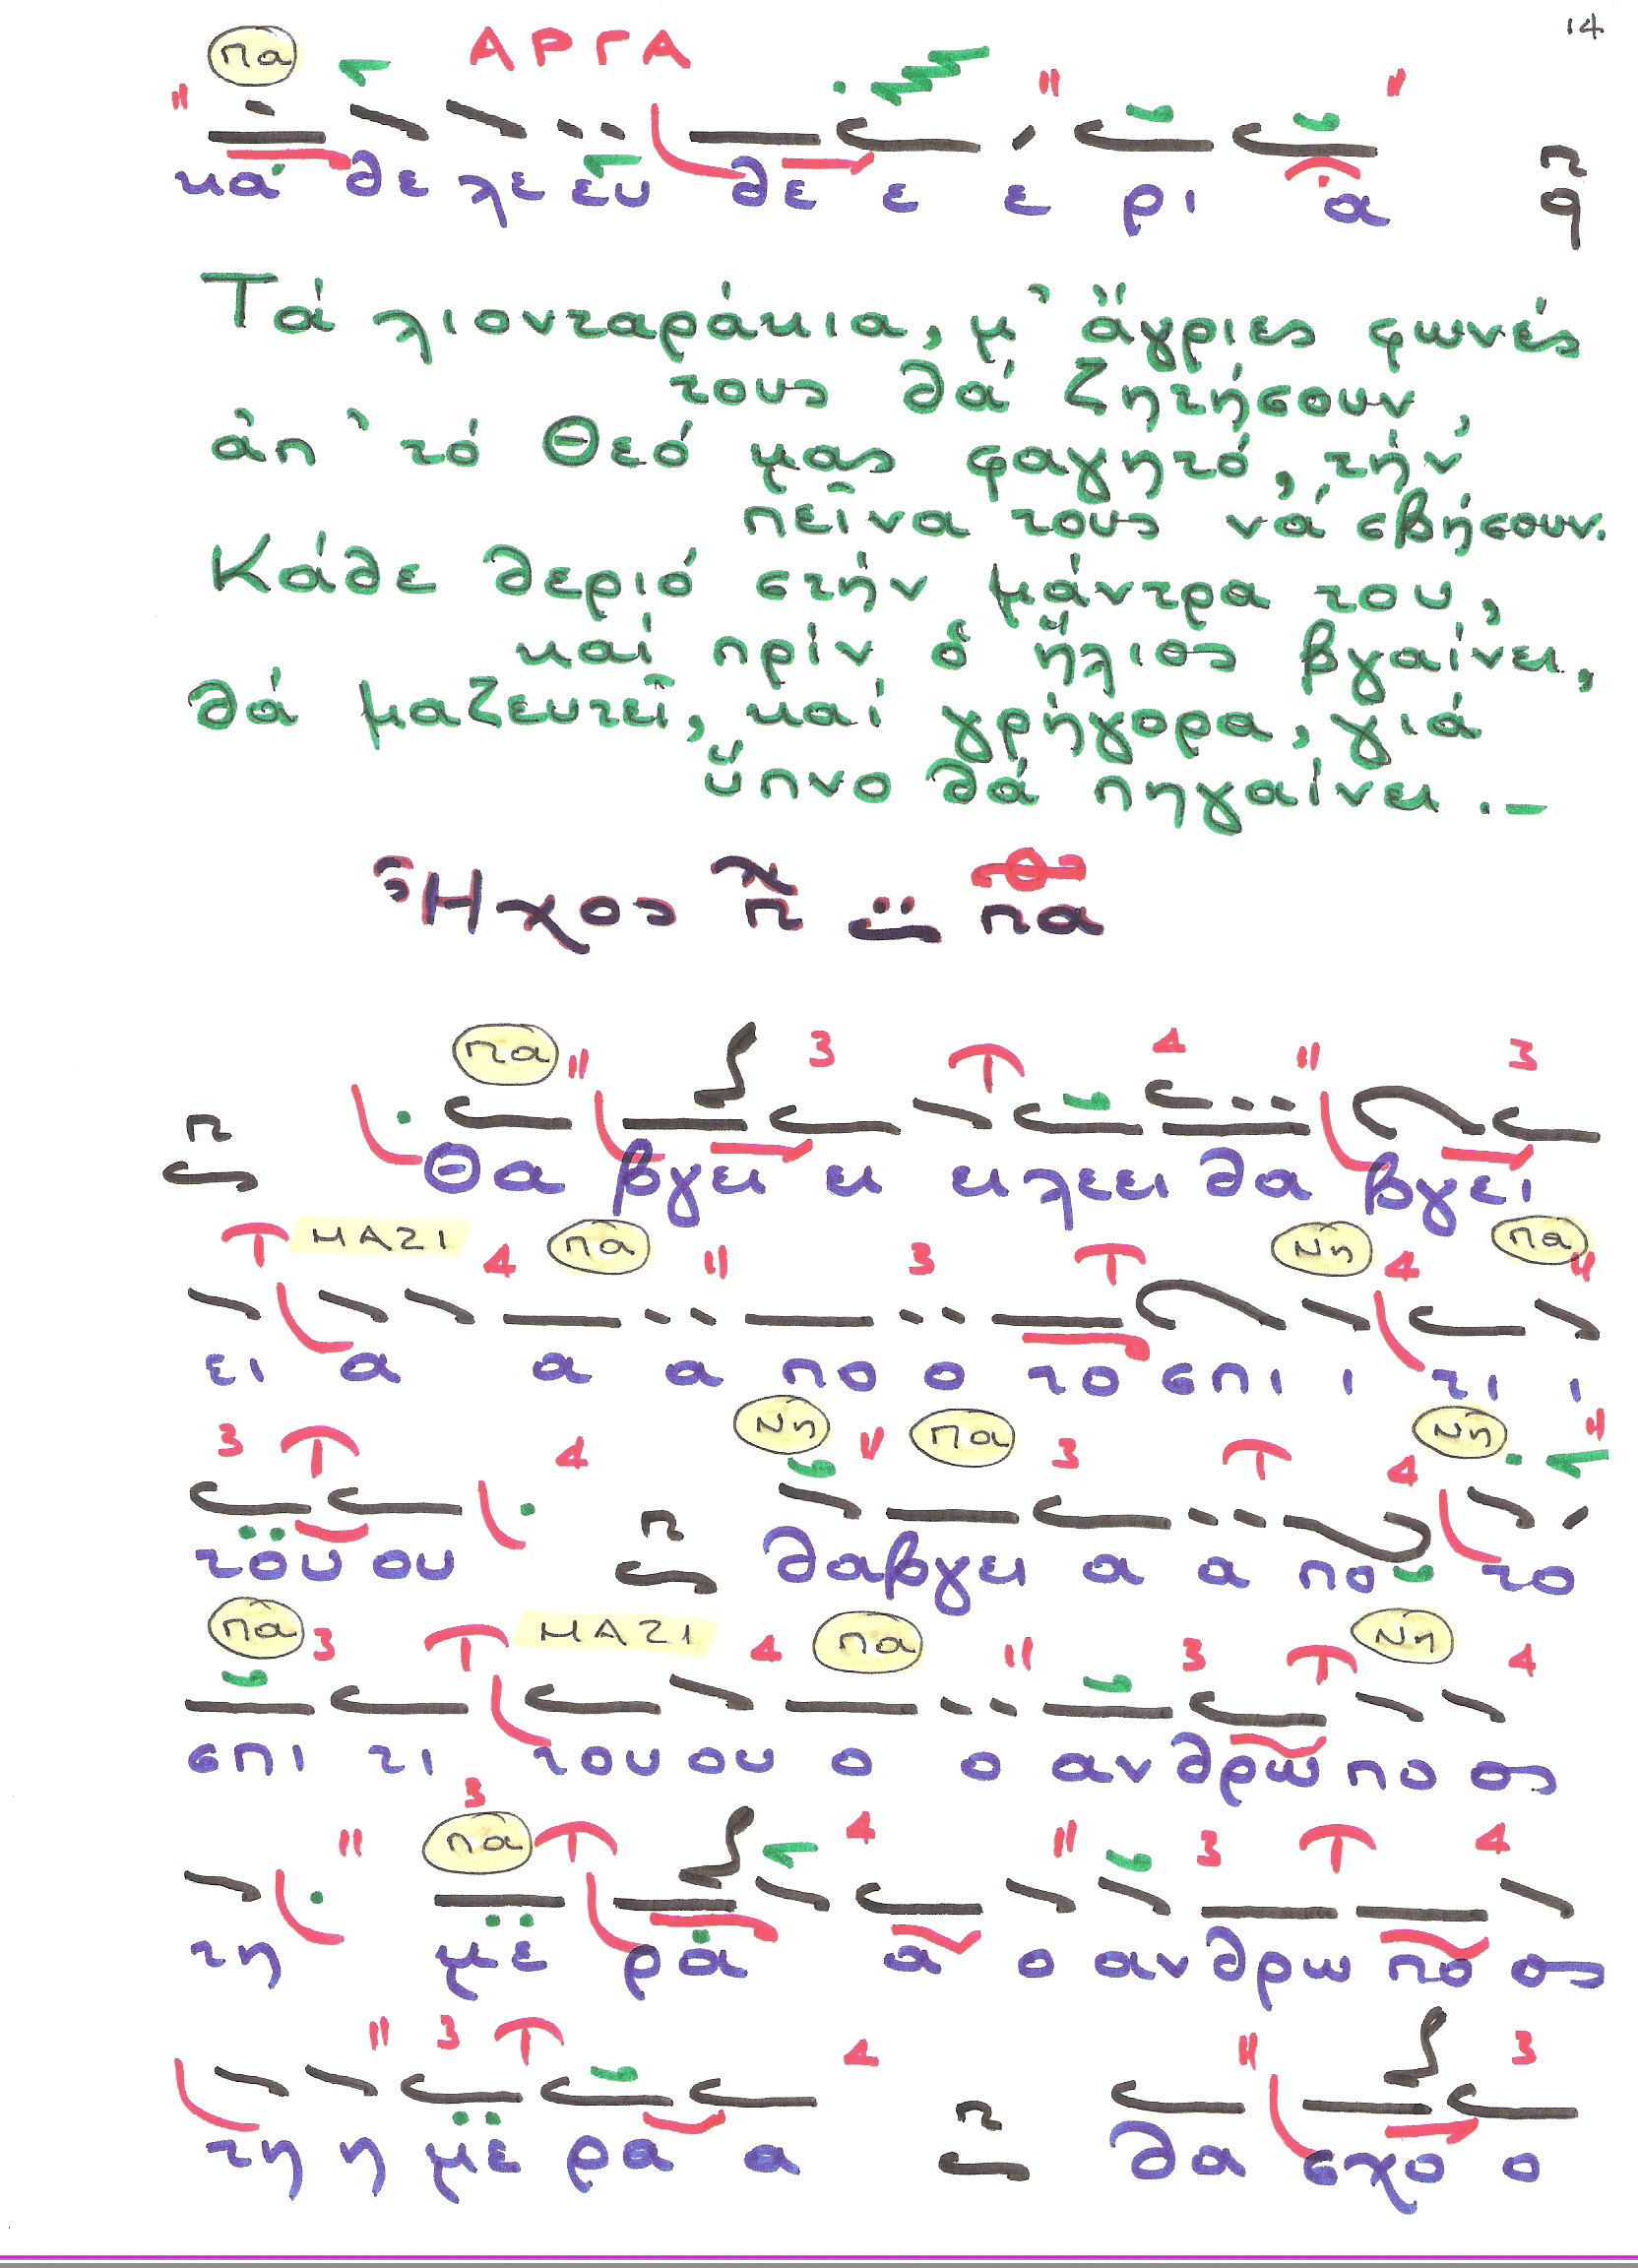 14
πα ΑΡΓΑ
κα θε λε ευ θε ε ε ρι α
Τά λιονταράκια, μ' ἄγριες φωνές
τους θά ζητήσουν,
ἀπ' τό Θεό μας φαγητό, τήν
πεῖνα τους νά σβήσουν.
Κάθε θεριό στήν μάντρα του,
καί πρίν ὁ ἥλιος βγαίνει,
θά μαζευτεῖ, καί γρήγορα, γιά
ὕπνο θά πηγαίνει.-
Ἦχος π πα
πα 3 4 3
Θα βγει ει ει λεει θα βγει
ΜΑΖΙ 4 πα 3 Νη 4 πα
ει α α α πο ο το σπι ι τι ι
3 4 Νη πα 3 4 Νη
του ου θα βγει α α πο το
πα 3 ΜΑΖΙ 4 πα 3 Νη 4
σπι τι του ου ο ο αν θρω πο ος
3 πα 4 3 4
τη με ρα α ο αν θρω πο ος
3 4 3
τη η με ρα α θα σχο ο